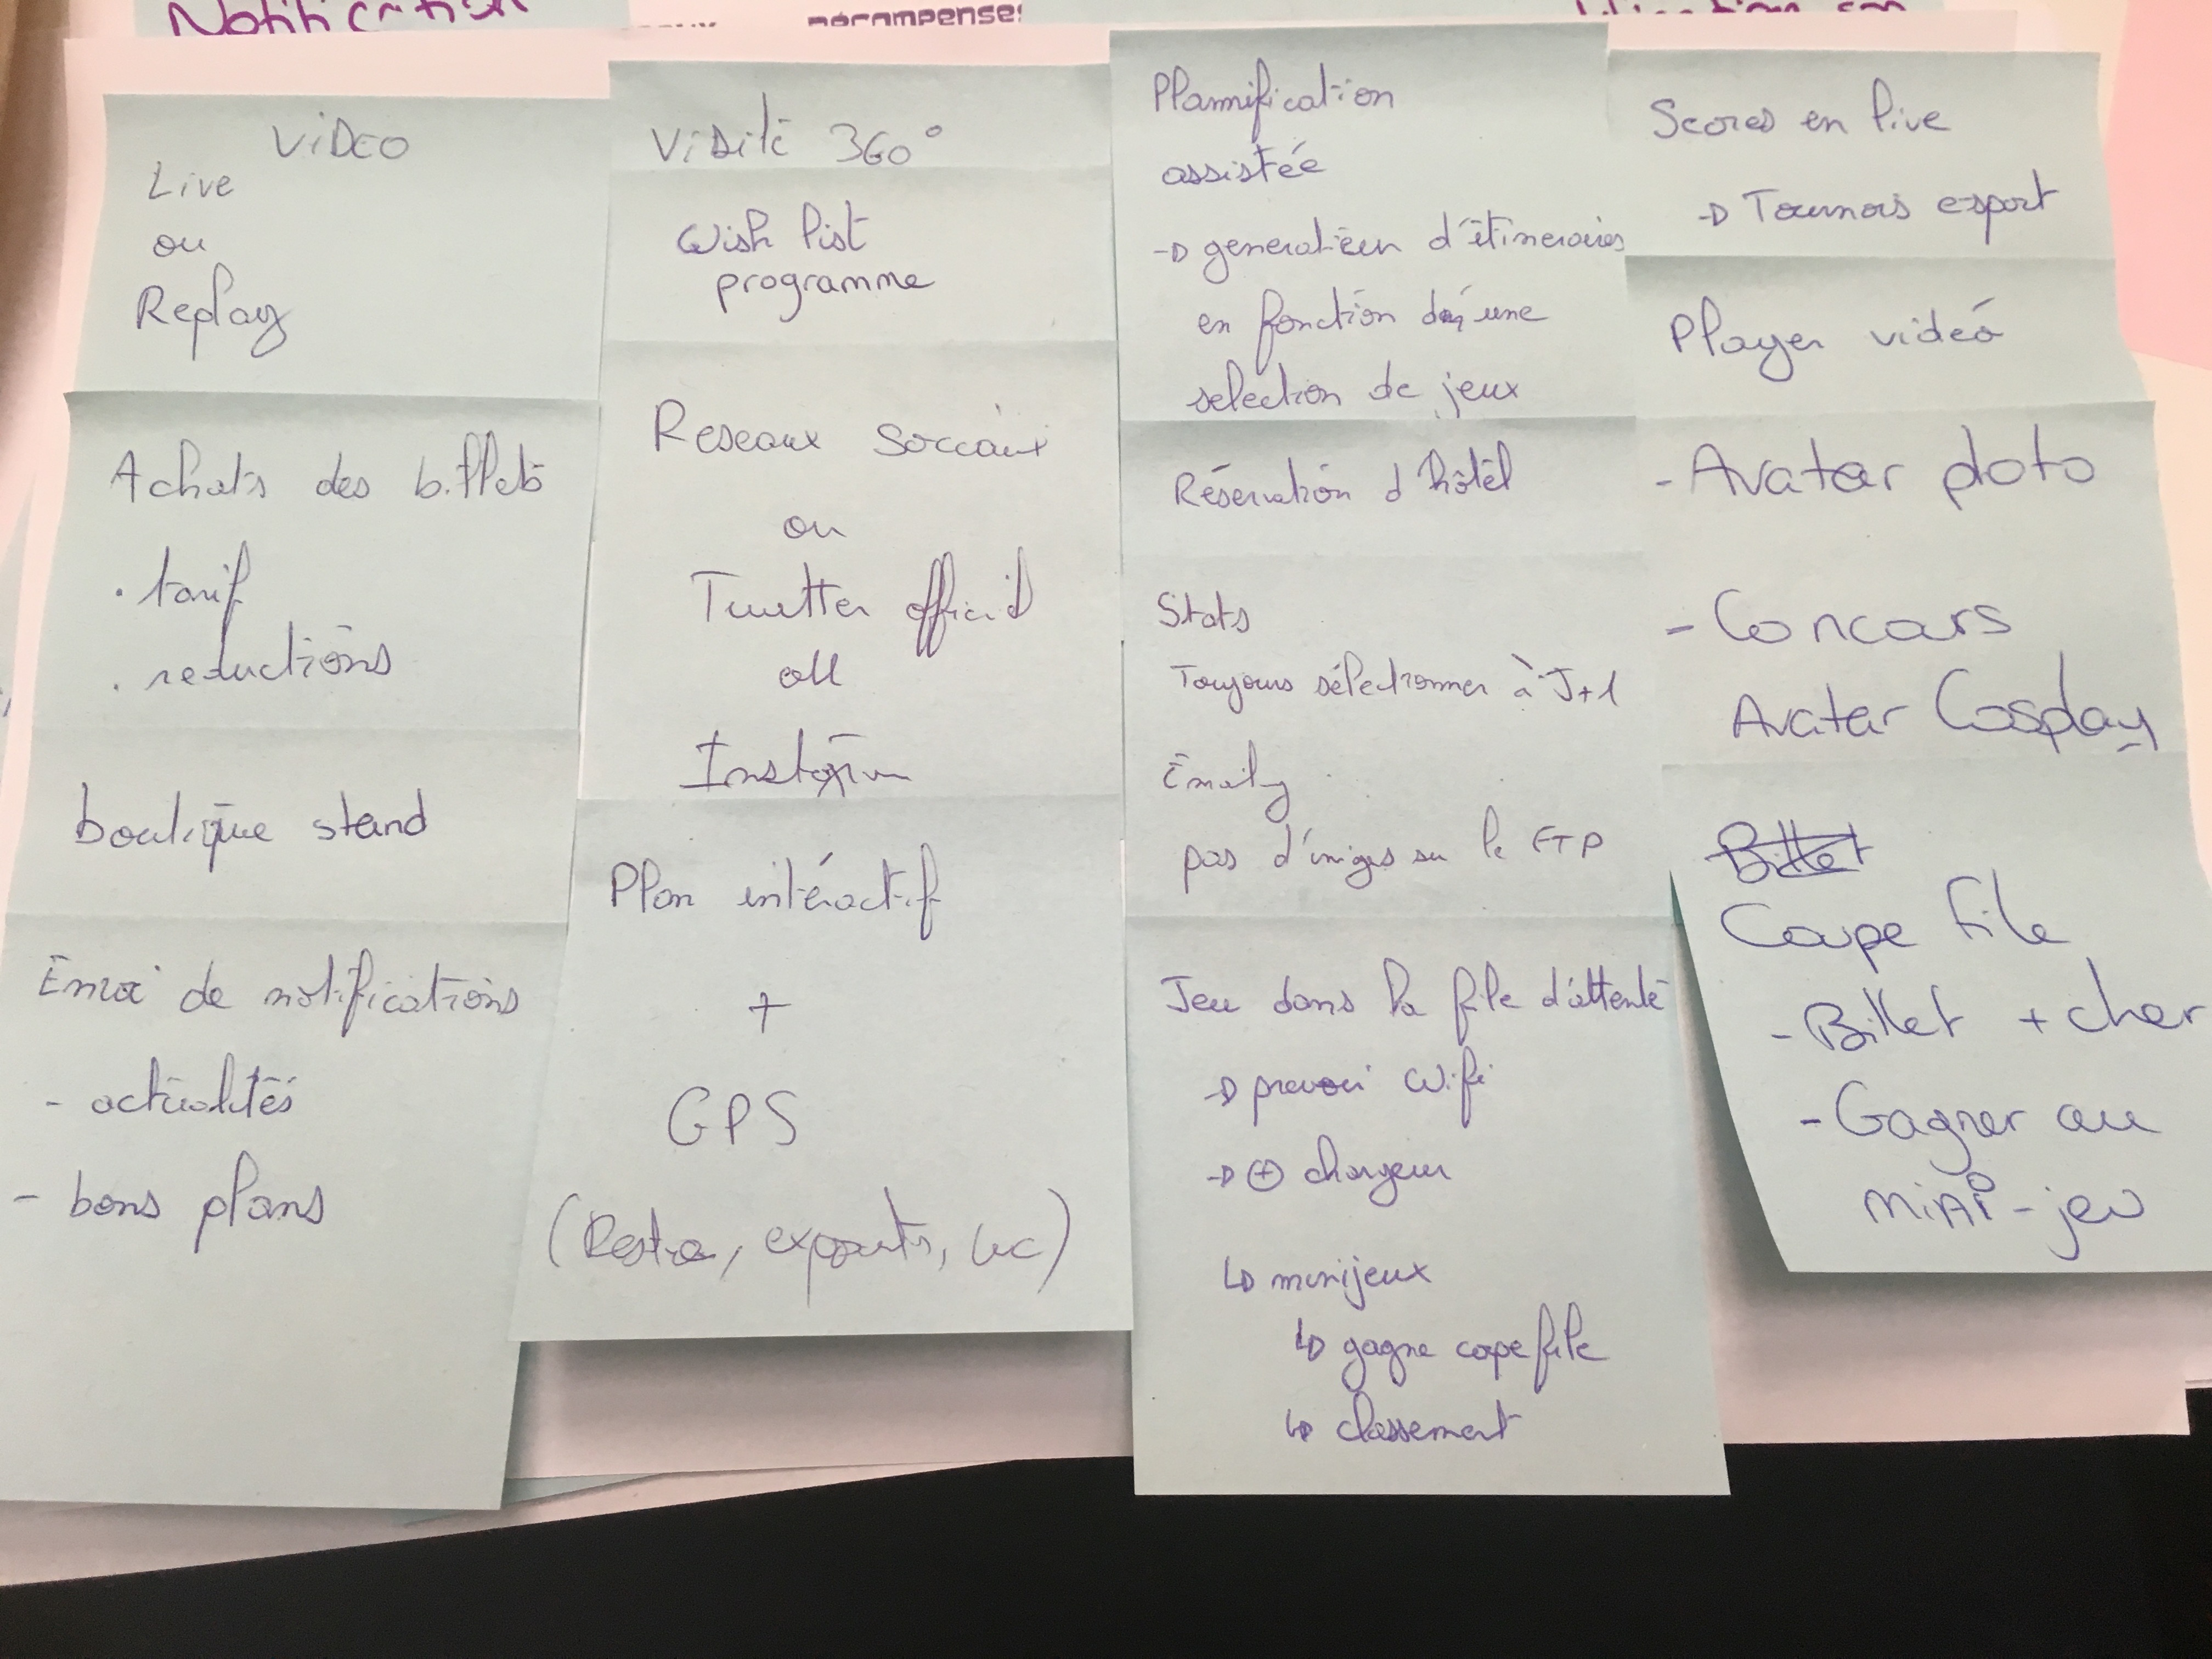 Notification
récompenses
VIDEO
Live
ou
Replay
Achats des billets
. tarif
. reductions
boutique stand
Envoi de notifications
- actualités
- bons plans
Visite 360°
Wish list
programme
Reseaux sociaux
ou
Twitter officiel
ou
Plan intéractif
+
GPS
(Resto, exposants, WC)
Plannification
assistée
→ generation d'itineraires
en fonction d'une
selection de jeux
Réservation d'hôtel
Stats
Toujours sélectionner à J+1
Emailing
pas d'images sur le FTP
Jeu dans la file d'attente
→ prevoir wifi
→ ⊕ chargeur
↳ minijeux
↳ gagne coupe file
↳ classement
Scores en live
→ Tournois esport
Player vidéo
- Avatar photo
- Concours
Avatar Cosplay
Billet
Coupe file
- Billet + cher
- Gagner au
mini-jeu